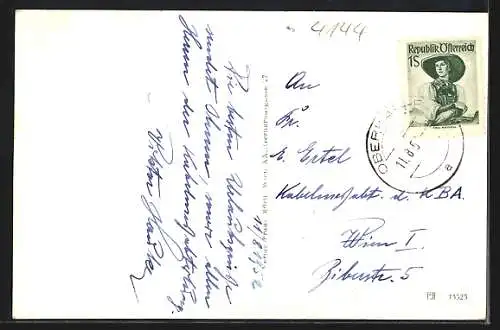 4144
Republik Österreich
1S
OBER
11.8.5
a
An
Fr.
E. Ertel
Kabelmeßabt. d. KBA.
Wien I
Biberstr. 5
Die besten Urlaubsgrüße
sendet Ihnen, sowie allen
Herren der Kabelmeßabteilung
11/8 1952
11525